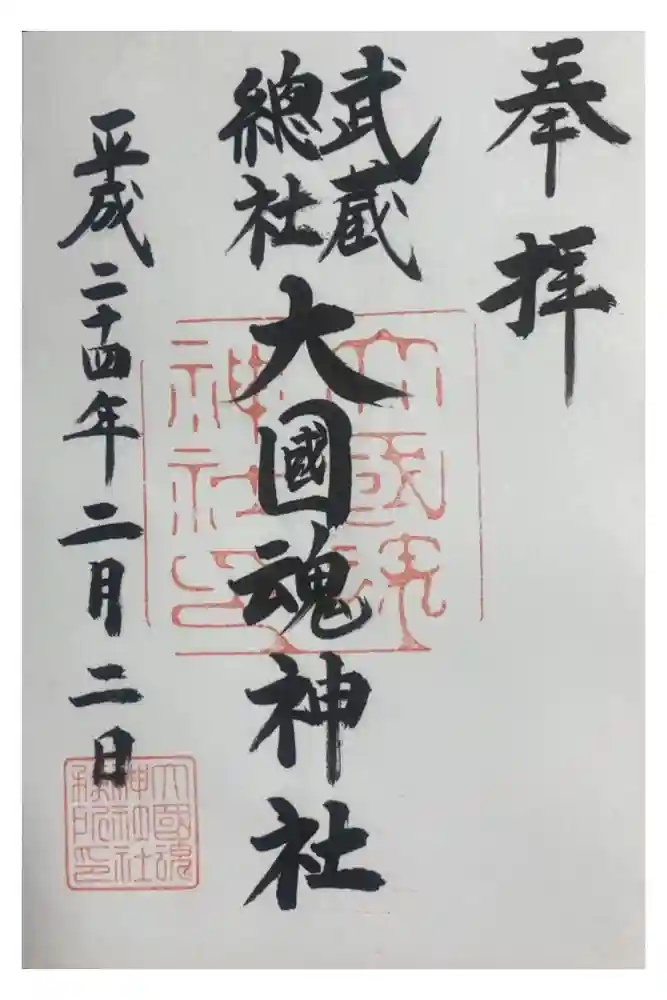 奉拝
武蔵
總社
大國魂神社
平成二十四年二月二日
大國魂
神社印
大國魂
神社社
務所印